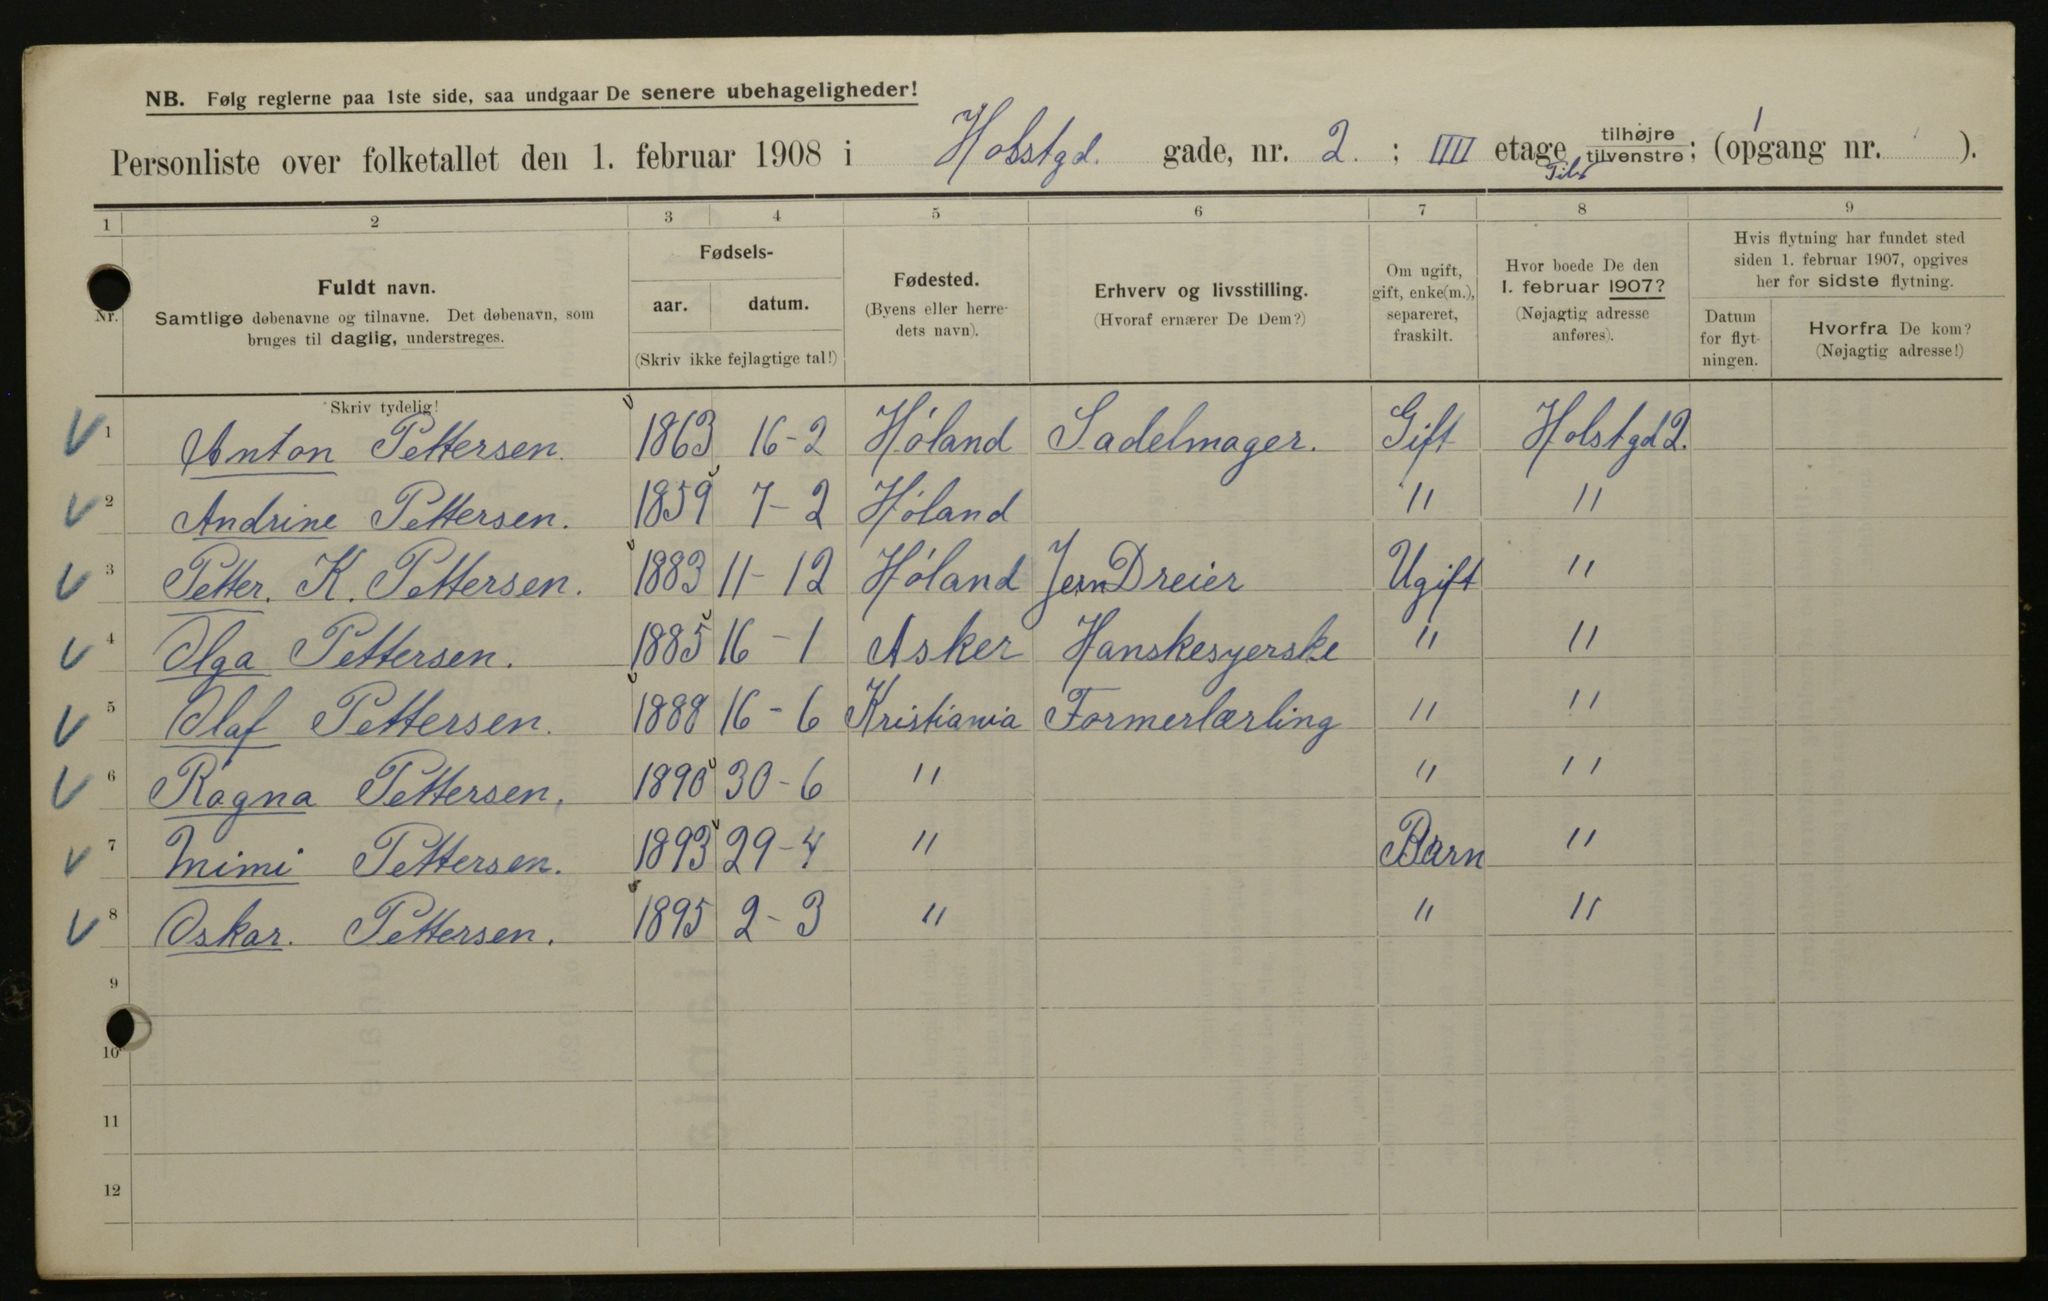 NB. Følg reglerne paa 1ste side, saa undgaar De senere ubehageligheder!
Personliste over folketallet den 1. februar 1908 i Holstgd. gade, nr. 2. ; IIII etage tilhøjre tilvenstre; (opgang nr. ).
1 2 3 4 5 6 7 8 9
Nr.
Fuldt navn.
Samtlige døbenavne og tilnavne. Det døbenavn, som
bruges til daglig, understreges.
Fødsels-
aar. datum.
(Skriv ikke fejlagtige tal!)
Fødested.
(Byens eller herre-
dets navn).
Erhverv og livsstilling.
(Hvoraf ernærer De Dem?)
Om ugift,
gift, enke(m.),
separeret,
fraskilt.
Hvor boede De den
1. februar 1907?
(Nøjagtig adresse
anføres).
Hvis flytning har fundet sted
siden 1. februar 1907, opgives
her for sidste flytning.
Datum
for flyt-
ningen.
Hvorfra De kom?
(Nøjagtig adresse!)
Skriv tydelig!
1 Anton Pettersen. 1863 16-2 Høland Sadelmager. Gift Holstgd 2.
2 Andrine Pettersen. 1859 7-2 Høland " "
3 Petter. K. Pettersen. 1883 11-12 Høland Jern Dreier Ugift "
4 Olga Pettersen. 1885 16-1 Asker Hanskesyerske " "
5 Olaf Pettersen. 1888 16-6 Kristiania Formerlærling " "
6 Ragna Pettersen. 1890 30-6 " " "
7 Mimi Pettersen. 1893 29-4 " Barn "
8 Oskar. Pettersen. 1895 2-3 " " "
9
10
11
12